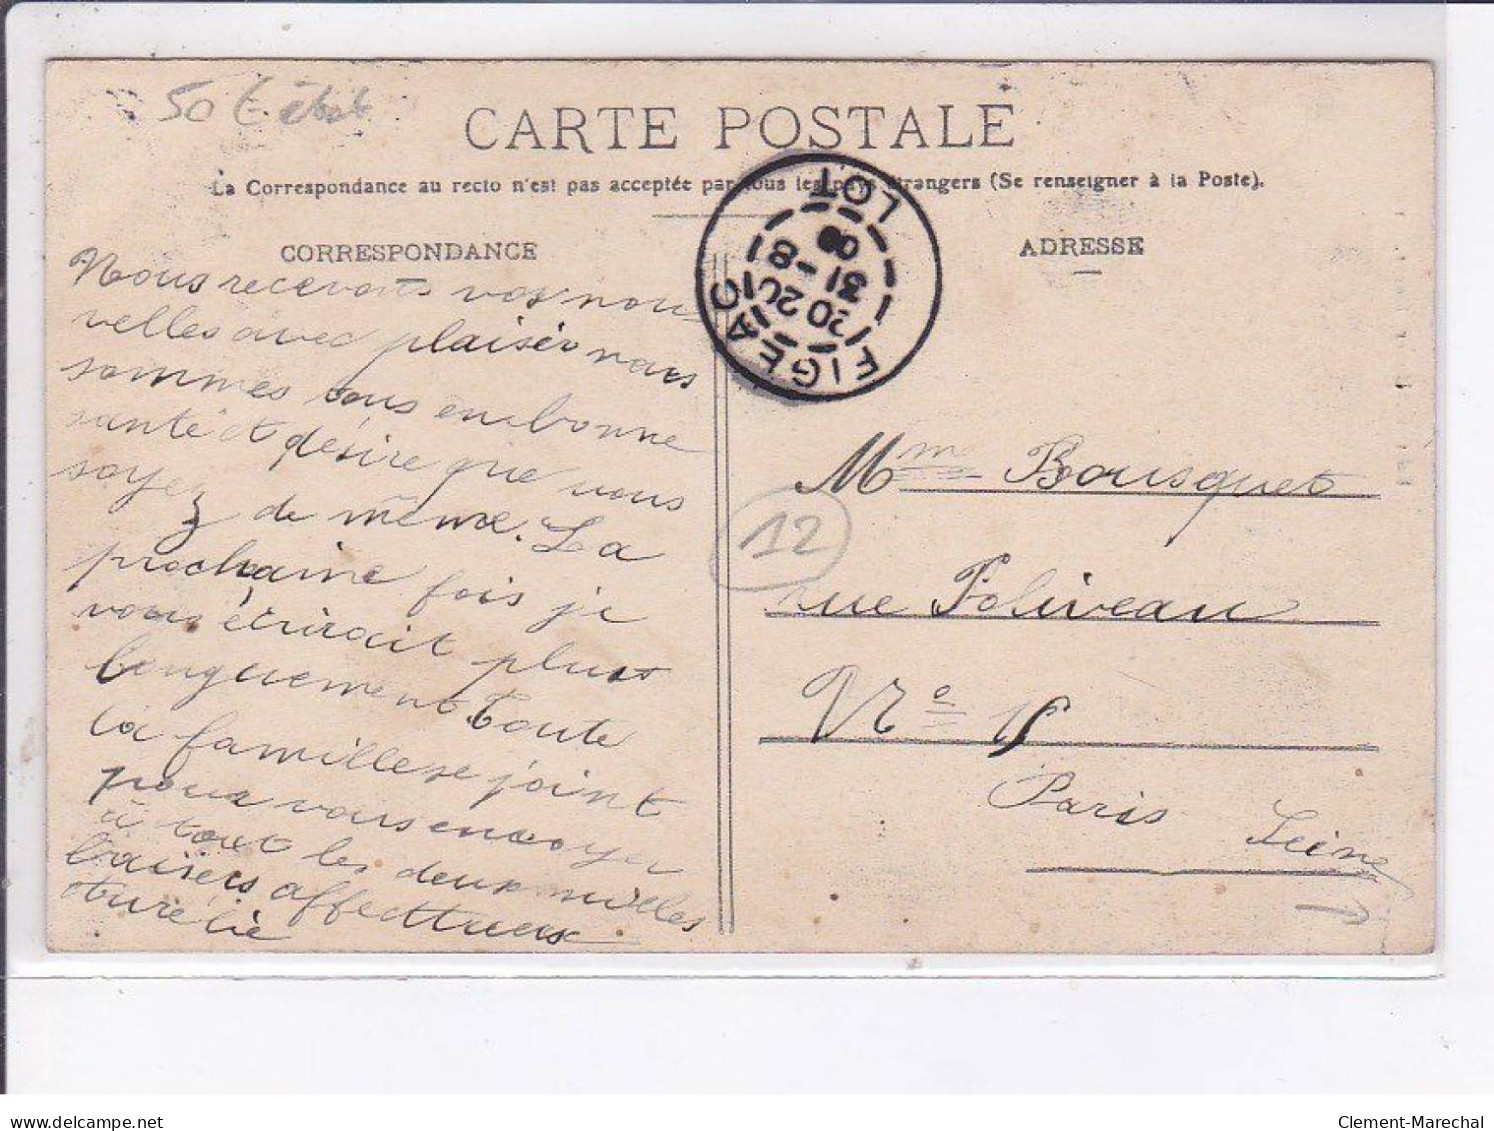 50 € état
CARTE POSTALE
La Correspondance au recto n'est pas acceptée par tous les pays étrangers (Se renseigner à la Poste).
CORRESPONDANCE
Nous recevons vos nou-
velles avec plaisir nous
sommes tous en bonne
santé et désire que vous
soyez de même. La
prochaine fois je
vous écrirait plus
longuement Toute
la famille se joint
pour vous envoyer
à tout les deux milles
baisers affecttueux
Aurélie
FIGEAC LOT
20 20
31-8
08
ADRESSE
Mme Bousquet
12
rue Poliveau
No 18
Paris Seine
delcampe.net
Clement-Marechal